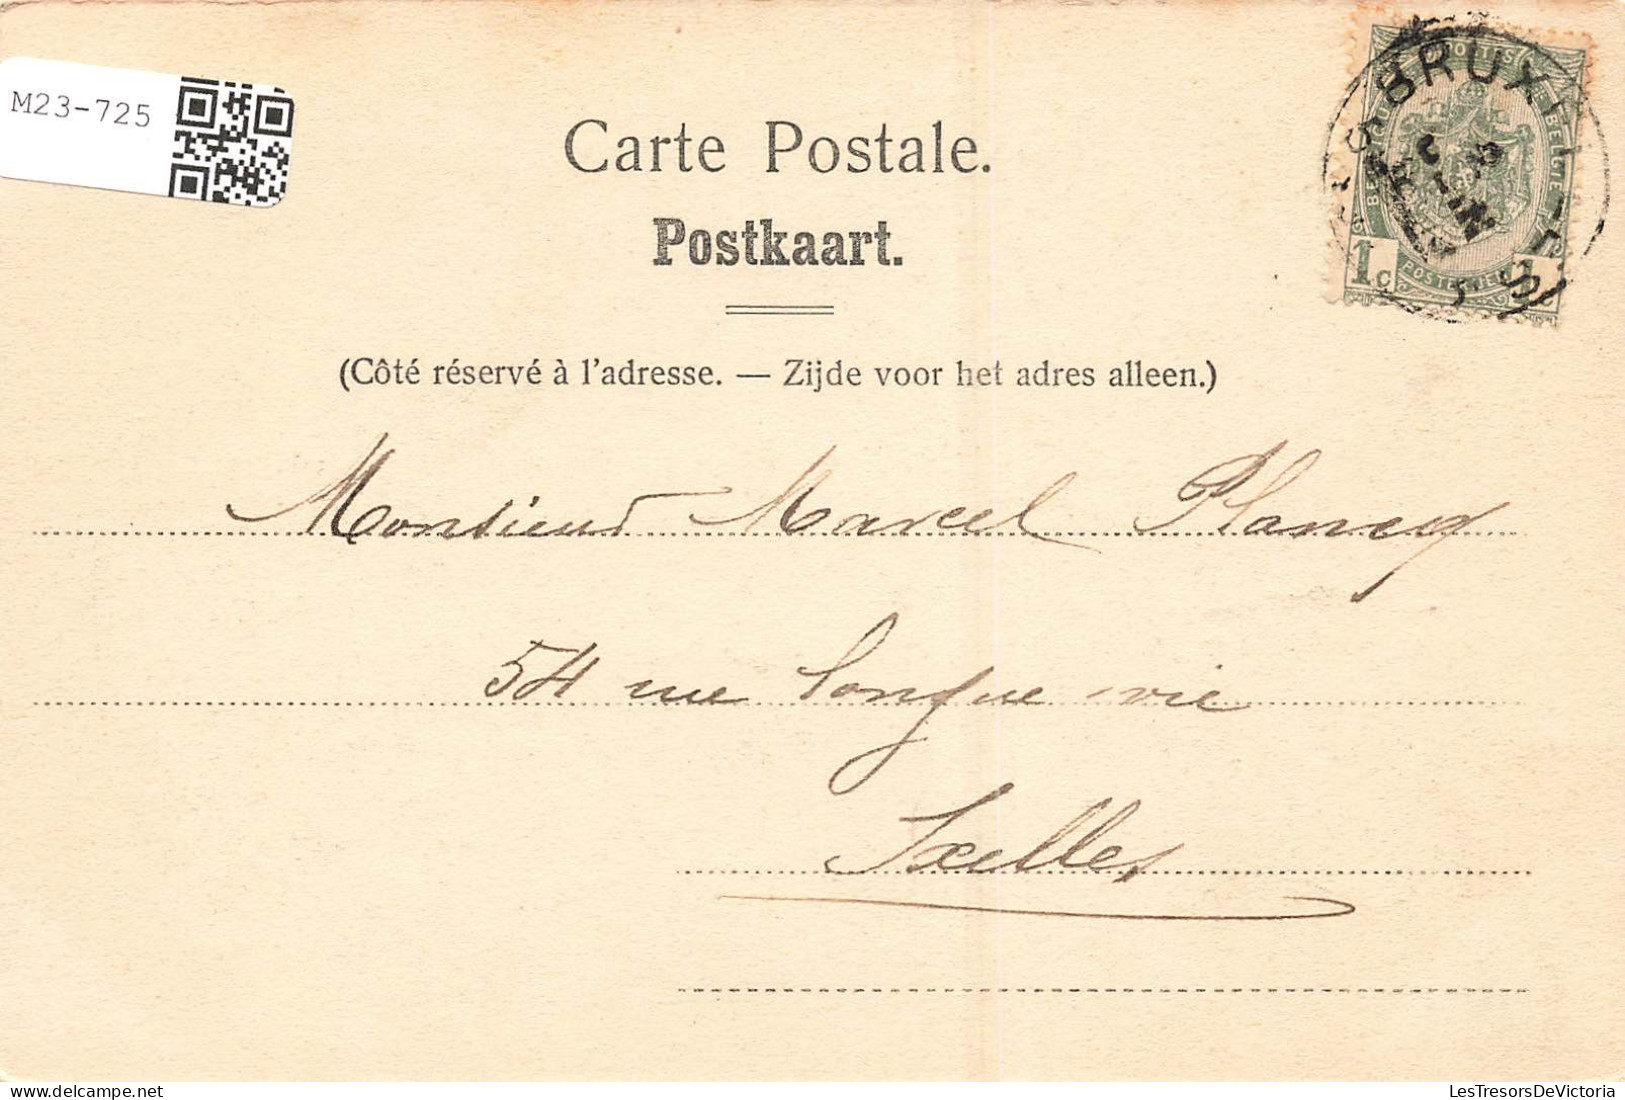 M23-725
Carte Postale.
Postkaart.
(Côté réservé à l'adresse. — Zijde voor het adres alleen.)
BRUXELLES
POSTES
BELGIE
1c 1c
Monsieur Marcel Plancq
54 rue longue vie
Ixelles
LesTresorsDeVictoria